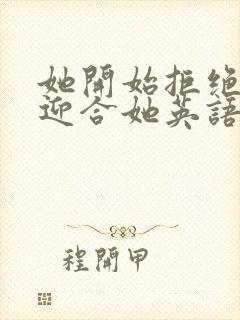 她開始拒绝
迎合她英語
程開甲